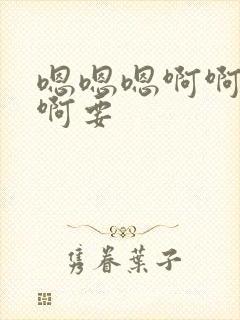 嗯嗯嗯啊啊
啊要
隽眷叶子